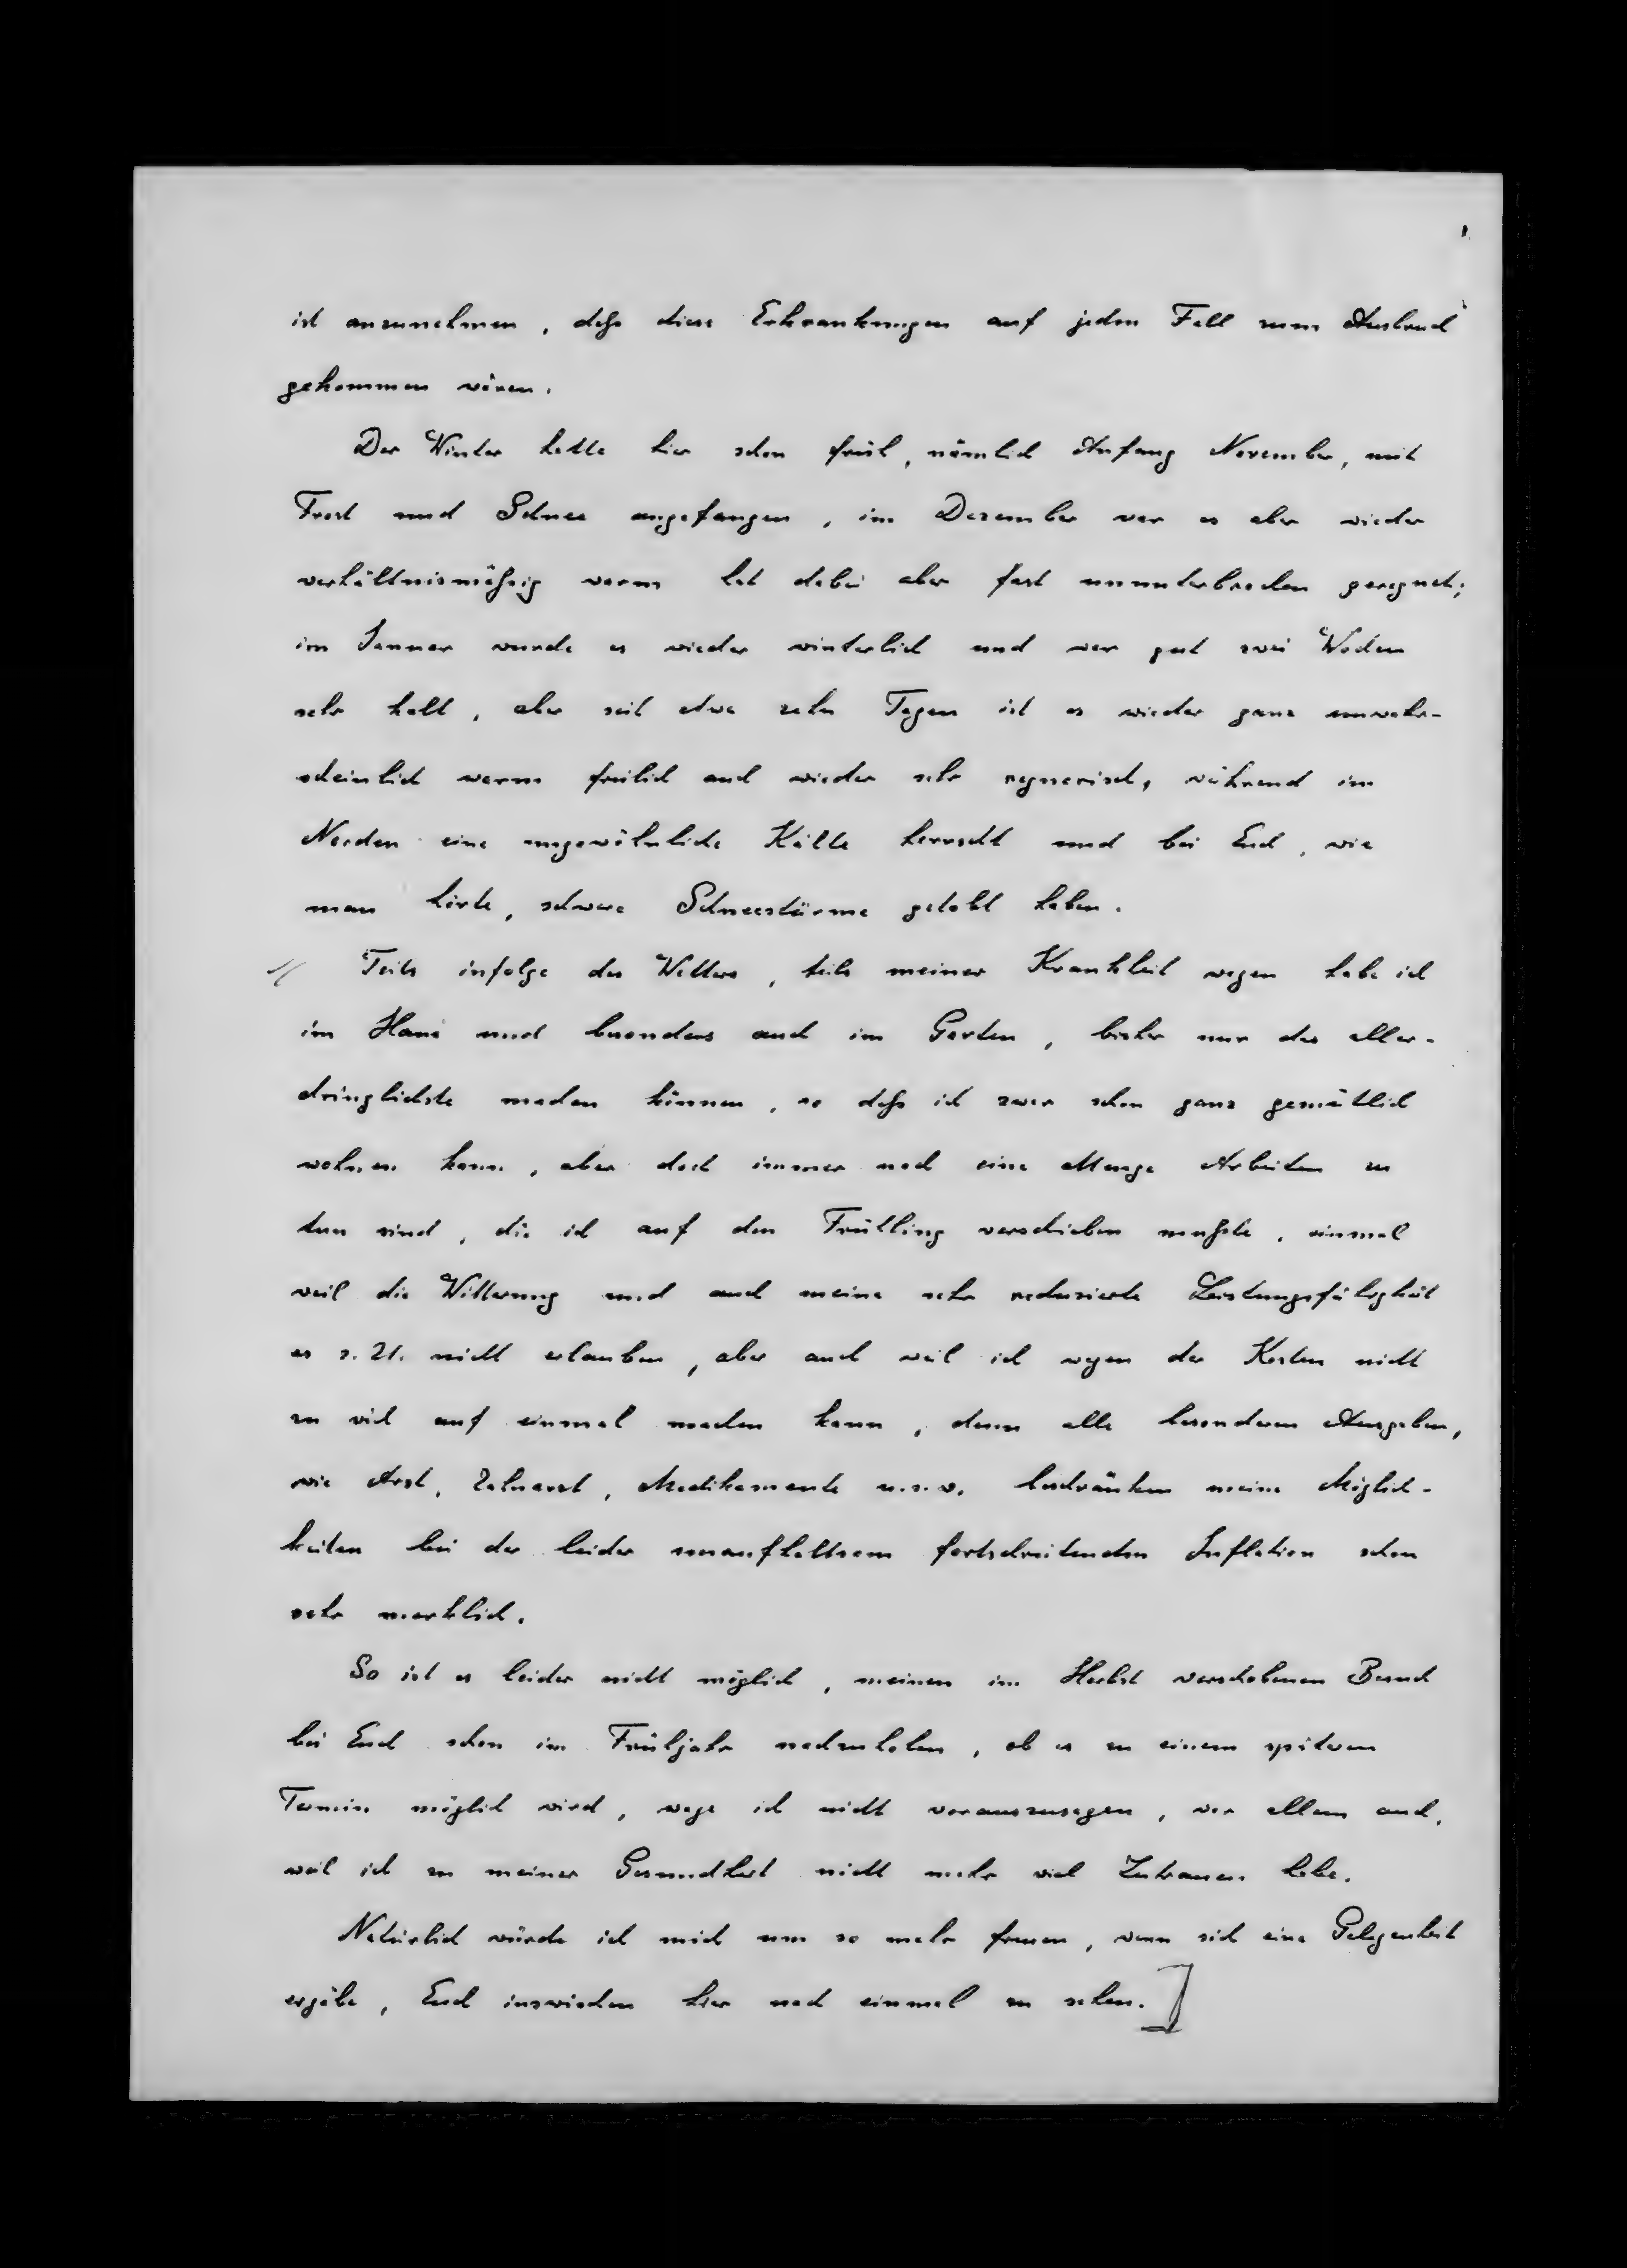 ist anzunehmen, daß diese Erkrankungen auf jeden Fall zum Ausbruch
gekommen wären.
Der Winter hatte hier schon früh, nämlich Anfang November, mit
Frost und Schnee angefangen, im Dezember war es aber wieder
verhältnismäßig warm hat dabei aber fast ununterbrochen geregnet;
im Januar wurde es wieder winterlich und war gut zwei Wochen
sehr kalt, aber seit etwa zehn Tagen ist es wieder ganz unwahr-
scheinlich warm freilich auch wieder sehr regnerisch, während im
Norden eine ungewöhnliche Kälte herrscht und bei Euch, wie
man hörte, schwere Schneestürme getobt haben.
Teils infolge des Wetters, teils meiner Krankheit wegen habe ich
im Haus und besonders auch im Garten, bisher nur das aller-
dringlichste machen können, so daß ich zwar schon ganz gemütlich
wohnen kann, aber doch immer noch eine Menge Arbeiten zu
tun sind, die ich auf den Frühling verschieben mußte, einmal
weil die Witterung und auch meine sehr reduzierte Leistungsfähigkeit
es z. Zt. nicht erlauben, aber auch weil ich wegen der Kosten nicht
zu viel auf einmal machen kann, denn alle besonderen Ausgaben,
wie Arzt, Zahnarzt, Medikamente u.s.w. beschränken meine Möglich-
keiten bei der leider unaufhaltsam fortschreitenden Inflation schon
sehr merklich.
So ist es leider nicht möglich, meinen im Herbst verschobenen Besuch
bei Euch schon im Frühjahr nachzuholen, ob es zu einem späteren
Termin möglich wird, wage ich nicht vorauszusagen, vor allem auch,
weil ich zu meiner Gesundheit nicht mehr viel Zutrauen habe.
Natürlich würde ich mich um so mehr freuen, wenn sich eine Gelegenheit
ergäbe, Euch inzwischen hier noch einmal zu sehen.]